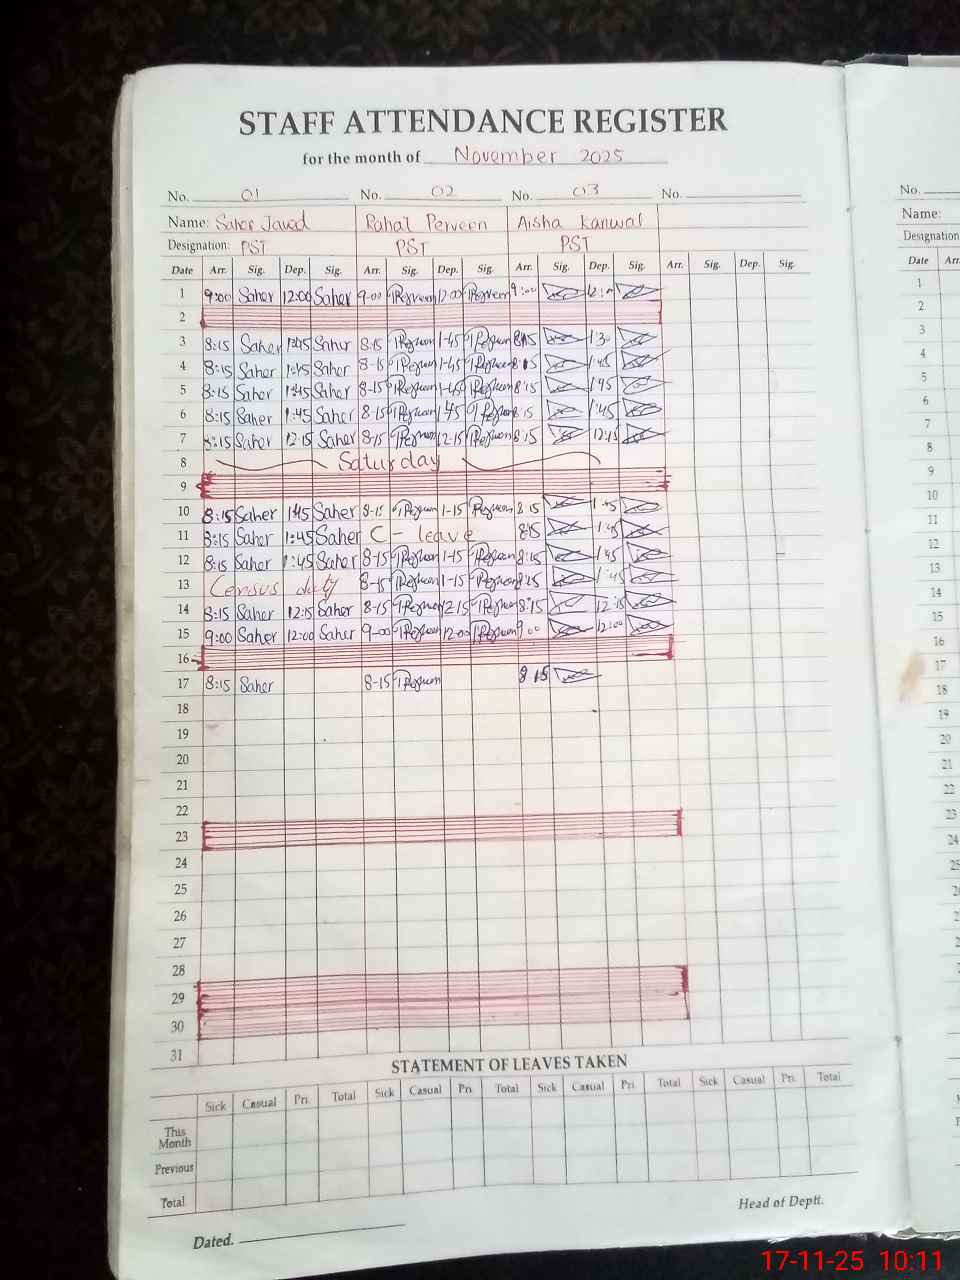 STAFF ATTENDANCE REGISTER
for the month of November 2025
No. 01 No. 02 No. 03 No. No.
Name: Saher Javed Rahat Perveen Aisha Kanwal Name:
Designation: PST PST PST Designation
Date Arr. Sig. Dep. Sig. Arr. Sig. Dep. Sig. Arr. Sig. Dep. Sig. Arr. Sig. Dep. Sig. Date Arr.
1 9:00 Saher 12:00 Saher 9-00 Perveen 12-00 Perveen 9:00 12:00 1
2 2
3 8:15 Saher 1:45 Saher 8-15 Perveen 1-45 Perveen 8:15 1:3 3
4 8:15 Saher 1:45 Saher 8-15 Perveen 1-45 Perveen 8:15 1:45 4
5 8:15 Saher 1:45 Saher 8-15 Perveen 1-45 Perveen 8:15 1:45 5
6 8:15 Saher 1:45 Saher 8-15 Perveen 1-45 Perveen 8:15 1:45 6
7 8:15 Saher 12:15 Saher 8-15 Perveen 12-15 Perveen 8:15 12:15 7
8 Saturday 8
9 9
10 8:15 Saher 1:45 Saher 8-15 Perveen 1-15 Perveen 8:15 1:45 10
11 8:15 Saher 1:45 Saher C - leave 8:15 1:45 11
12 8:15 Saher 1:45 Saher 8-15 Perveen 1-15 Perveen 8:15 1:45 12
13 Census duty 8-15 Perveen 1-15 Perveen 8:15 1:45 13
14 8:15 Saher 12:15 Saher 8-15 Perveen 12-15 Perveen 8:15 12:15 14
15 9:00 Saher 12:00 Saher 9-00 Perveen 12-00 Perveen 9:00 12:00 15
16 16
17 8:15 Saher 8-15 Perveen 8:15 17
18 18
19 19
20 20
21 21
22 22
23 23
24 24
25 25
26
27
28
29
30
31
STATEMENT OF LEAVES TAKEN
Sick Casual Pri. Total Sick Casual Pri. Total Sick Casual Pri. Total Sick Casual Pri. Total
This
Month
Previous
Total
Head of Deptt.
Dated.
17-11-25 10:11